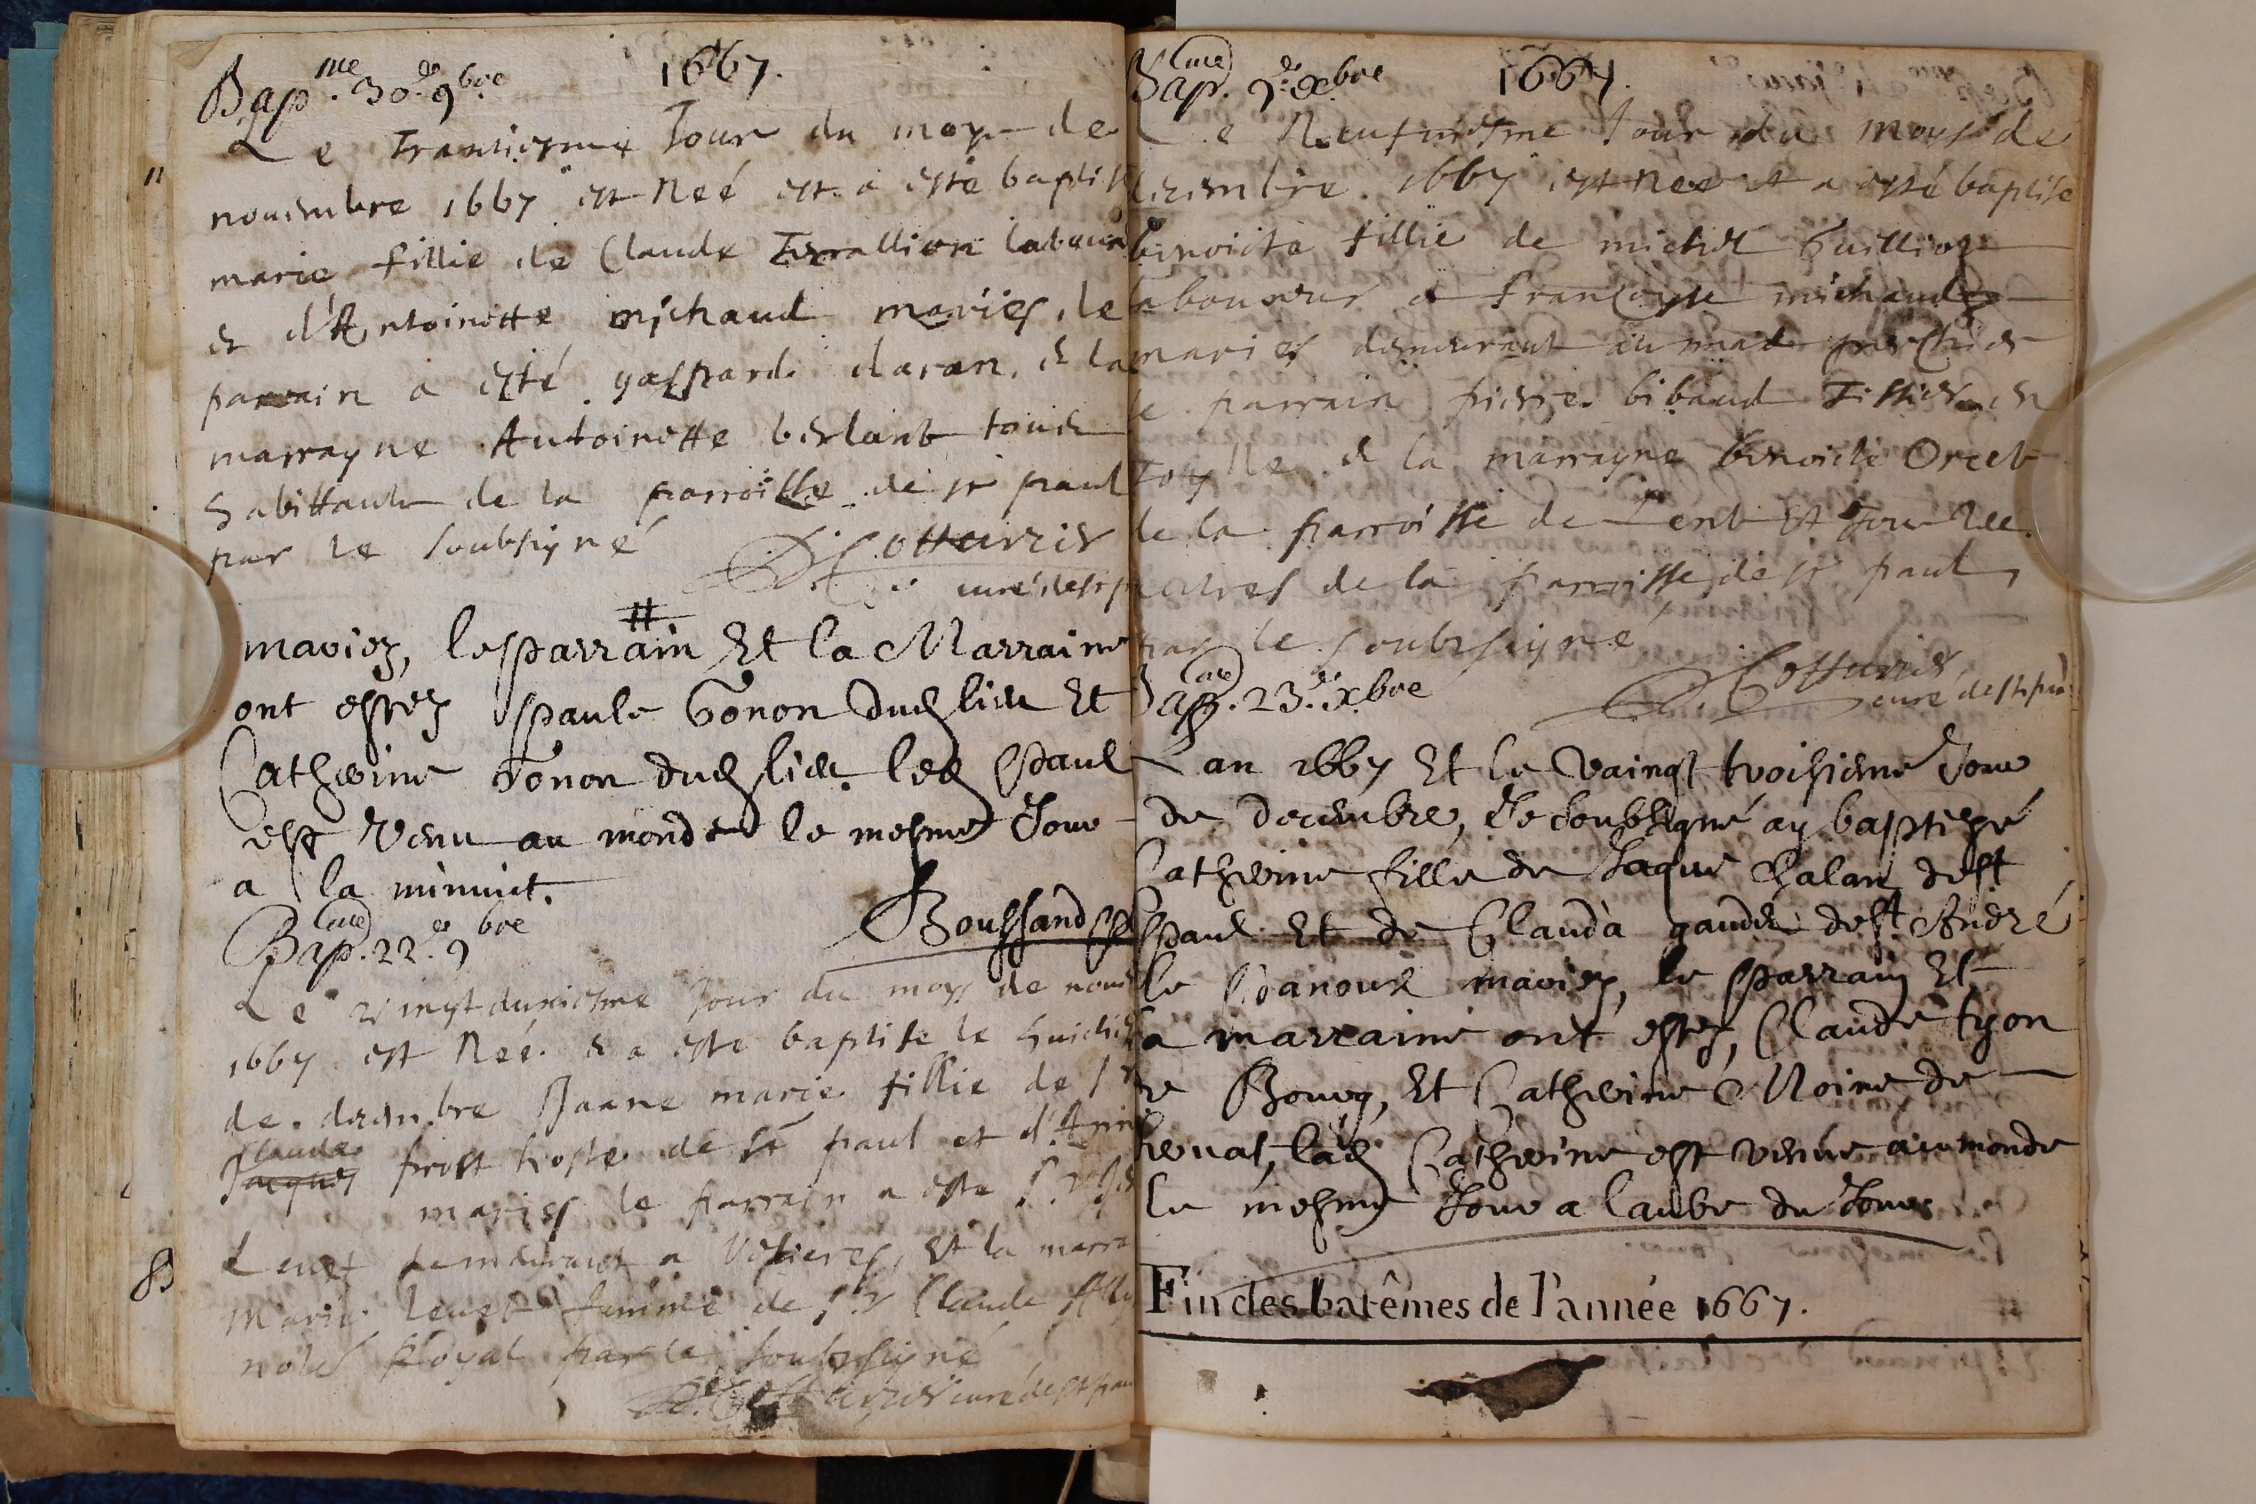 1667.
Bap.me 30.e 9.bre
Le Trantiesme Jour du moys de
nouembre 1667 est Neé est a esté baptise
marie fillie de Claude Terallion laboureur
et d'Antoinette michaud mariés, le
parrain a esté gaspard daran, & la
marrayne Antoinette berlant tous
habittants de la parroisse de st paul
par le soubsigné
Cottarrier
curé de st p
#
mariez, le parrain Et la Marraine
ont estez Paule Gonon dud lieu Et
Catherine Gonon dud lieu. led Paul
est venu au monde le mesme Jour
a la minuit.
Boussand
Bap. 22.e 9bre
Le vingt duxiesme Jour du moys de
1667 est Neé & a esté baptise le huicti
de decembre Jeane marie fillie de Sr
Claude
Jacques prost hoste de st paul et d'Anne
mariés le parrain a esté Sr
Levet demeurant a, Et la marra
Marie Levet famme de Sr Claude
Royal par le soubsigné
curé de st paul
1667.
Bap. 9.e xbre
Le Neufuiesme Jour du moys de
decembre 1667 est Nee et a esté baptise
benoiste fillie de michel Guillion
laboureur & francoyse michaud
mariés demeurant au mad
le parrain pierre bibaud Tissier en
Toylle & la marrayne benoiste Orcet
de la parroisse de Lent Et tous les
autres de la parroisse de st paul,
par le soubsigné
Cottarrier
curé de st paul
Bap. 23.e xbre
Lan 1667 Et le vaingt troisieme Jour
de decembre, Je soubsigné ay baptizé
Catherine fille de Jaque Chalan de st
Paul Et de Clauda gaudet de st André
le Panoux mariez, le parrain Et
la marraine ont estez, Claude tyon
de Bourg, Et Catherine Moine de
, lad Catherine est venue au monde
le mesme Jour a laube du Jour
Fin des batêmes de l'année 1667.